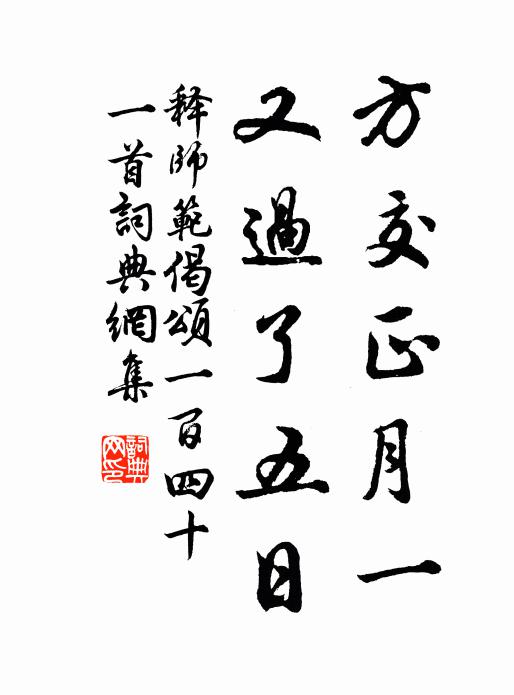 方交正月一
又過了五日
释師範偈頌一百四十
一首詞典網集
詞典網印